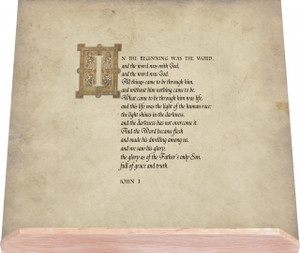 IN THE BEGINNING WAS THE WORD,
and the word was with God,
and the word was God.
All things came to be through him,
and without him nothing came to be.
What came to be through him was life,
and this life was the light of the human race;
the light shines in the darkness,
and the darkness has not overcome it.
And the Word became flesh
and made his dwelling among us,
and we saw his glory,
the glory as of the Father's only Son,
full of grace and truth.
JOHN 1